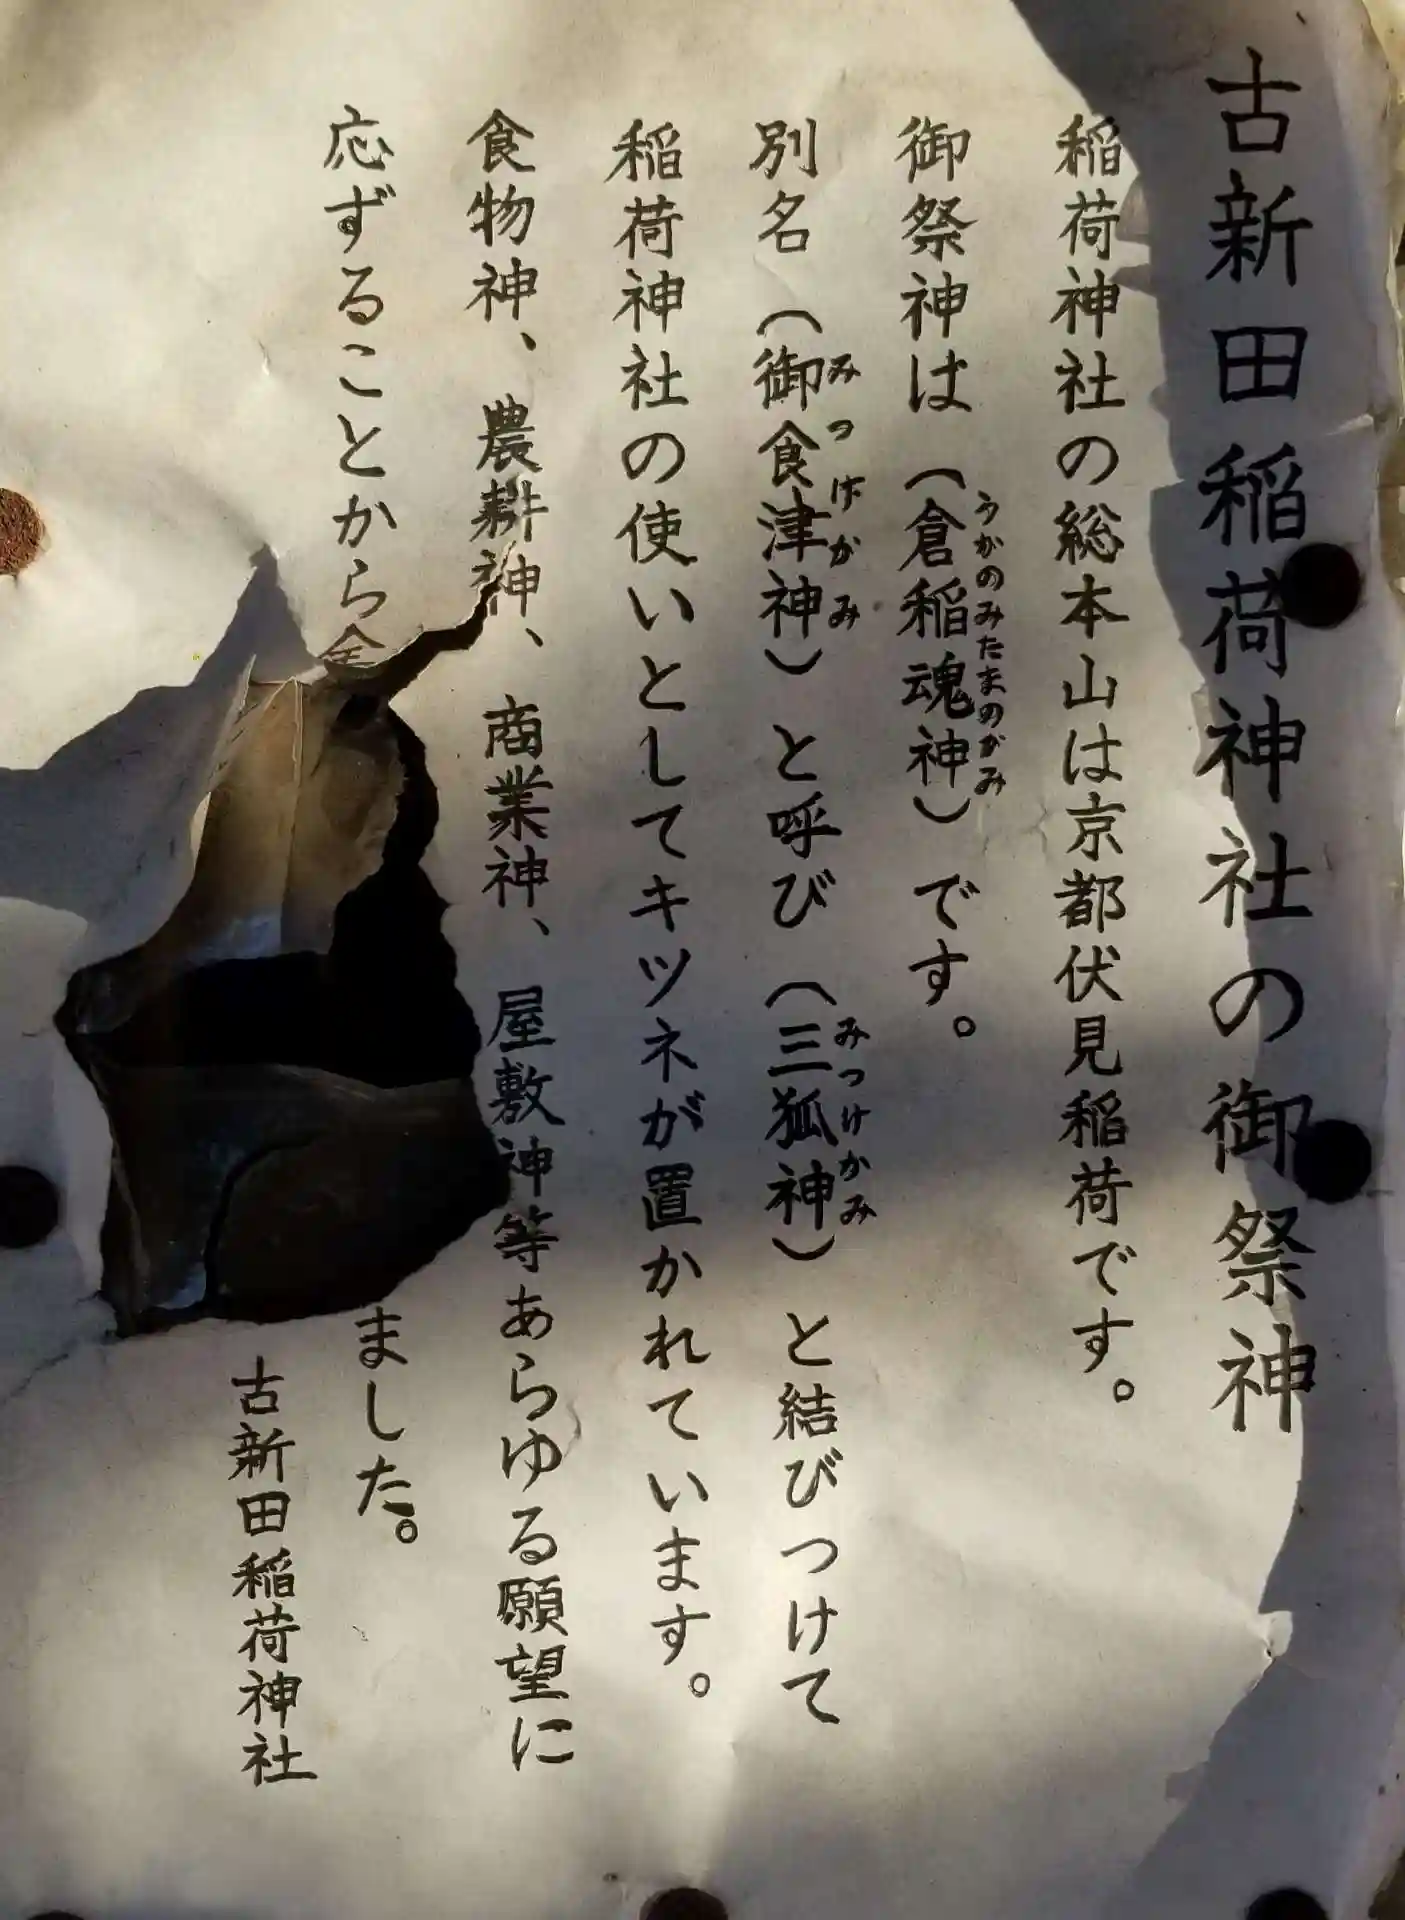 古新田稲荷神社の御祭神
稲荷神社の総本山は京都伏見稲荷です。
御祭神は(倉稲魂神)です。
うかのみたまのがみ
別名(御食津神)と呼び(三狐神)と結びつけて
みつけかみ
みつけかみ
稲荷神社の使いとしてキツネが置かれています。
食物神、農耕神、商業神、屋敷神等あらゆる願望に
応ずることから
ました。
古新田稲荷神社